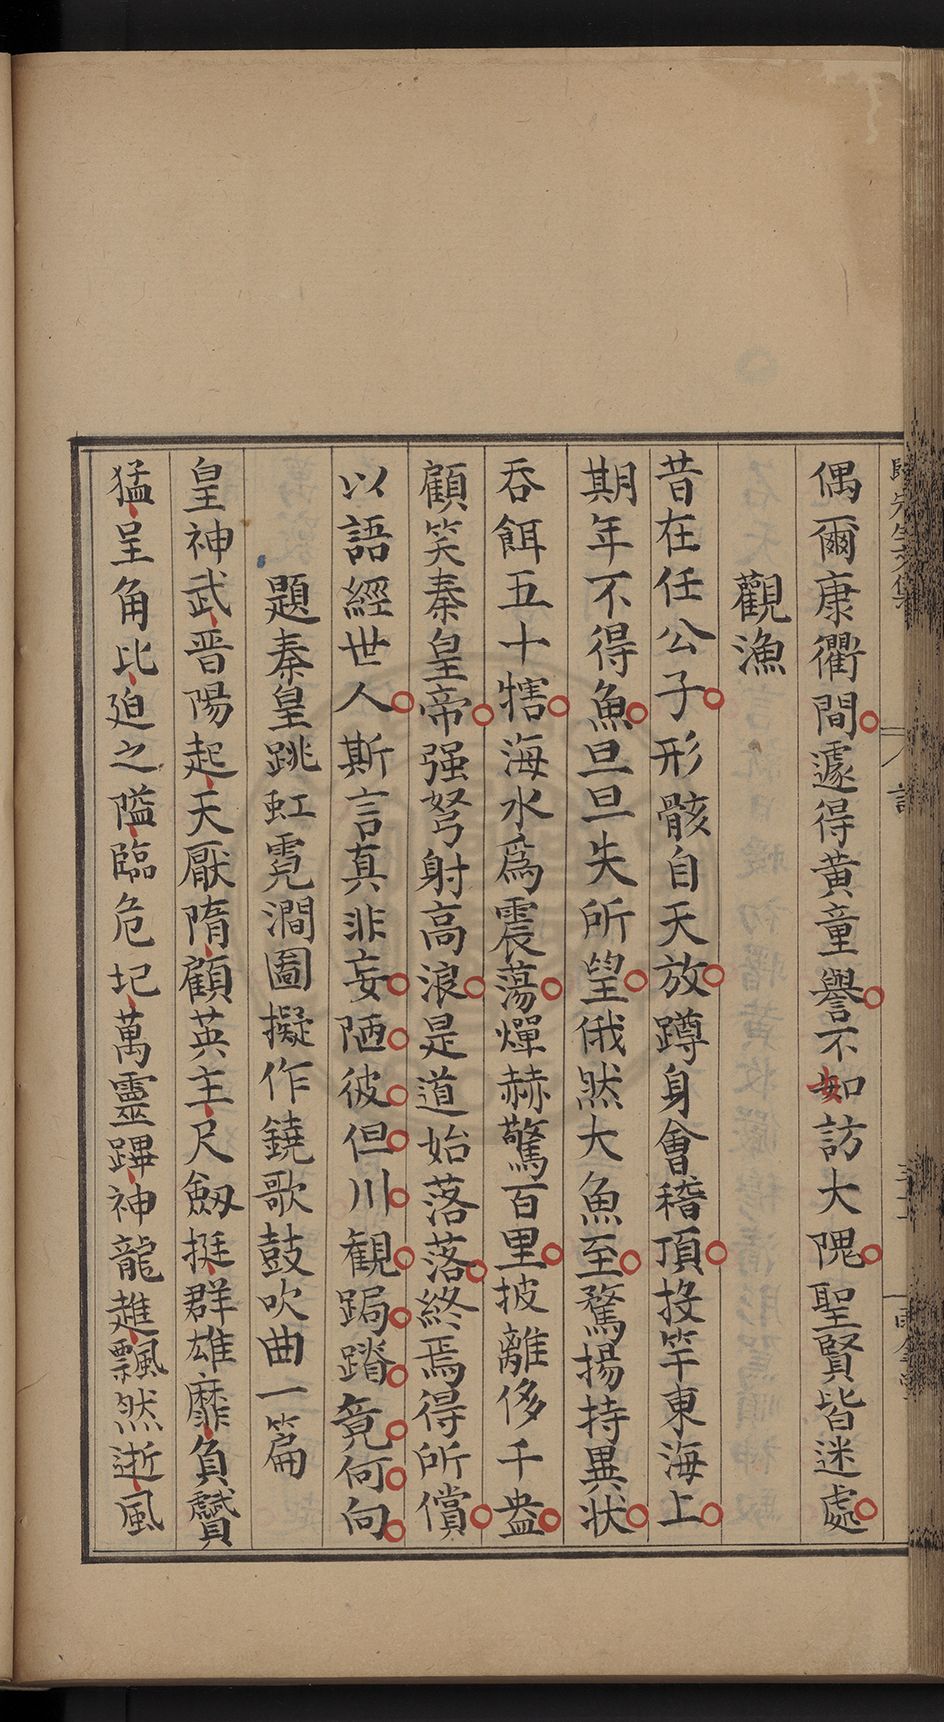 偶爾康衢間遽得黄童譽不如訪大隗聖賢皆迷處
觀漁
昔在任公子形骸自天放蹲身會稽頂投竿東海上
期年不得魚旦旦失所望俄然大魚至騖揚持異状
吞餌五十犗海水爲震蕩燀赫驚百里披離侈千盎
顧笑秦皇帝强弩射高浪是道始落落終焉得所償
以語經世人斯言真非妄陋彼但川觀跼蹐竟何向
題秦皇跳虹霓澗圖擬作鐃歌鼓吹曲一篇
皇神武晋陽起天厭隋顧英主尺劔挺群雄靡負贙
猛呈角比迫之隘臨危圮萬靈蹕神龍趡飄然逝風